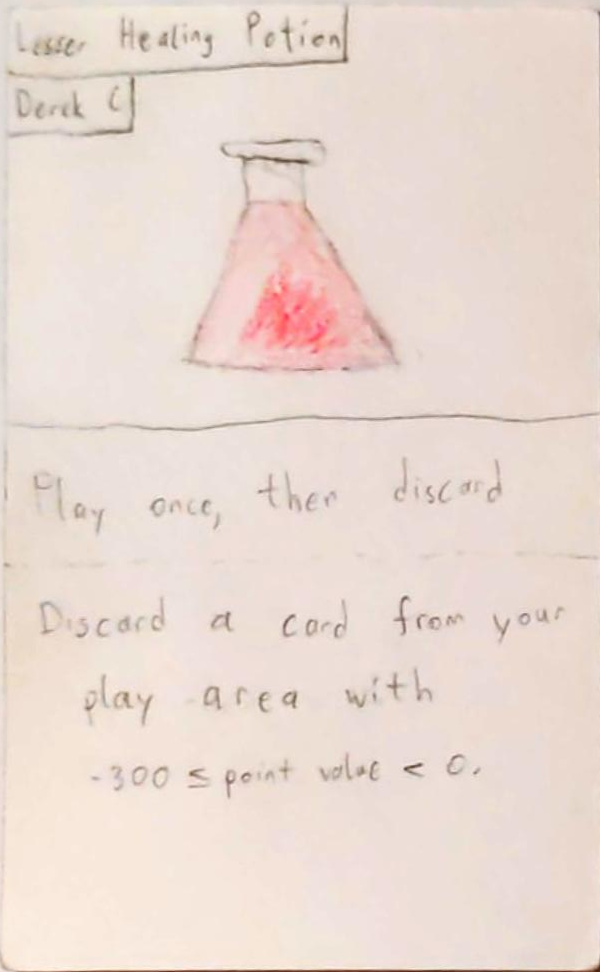 Lesser Healing Potion
Derek C
Play once, then discard
Discard a card from your
play area with
-300 ≤ point value < 0.